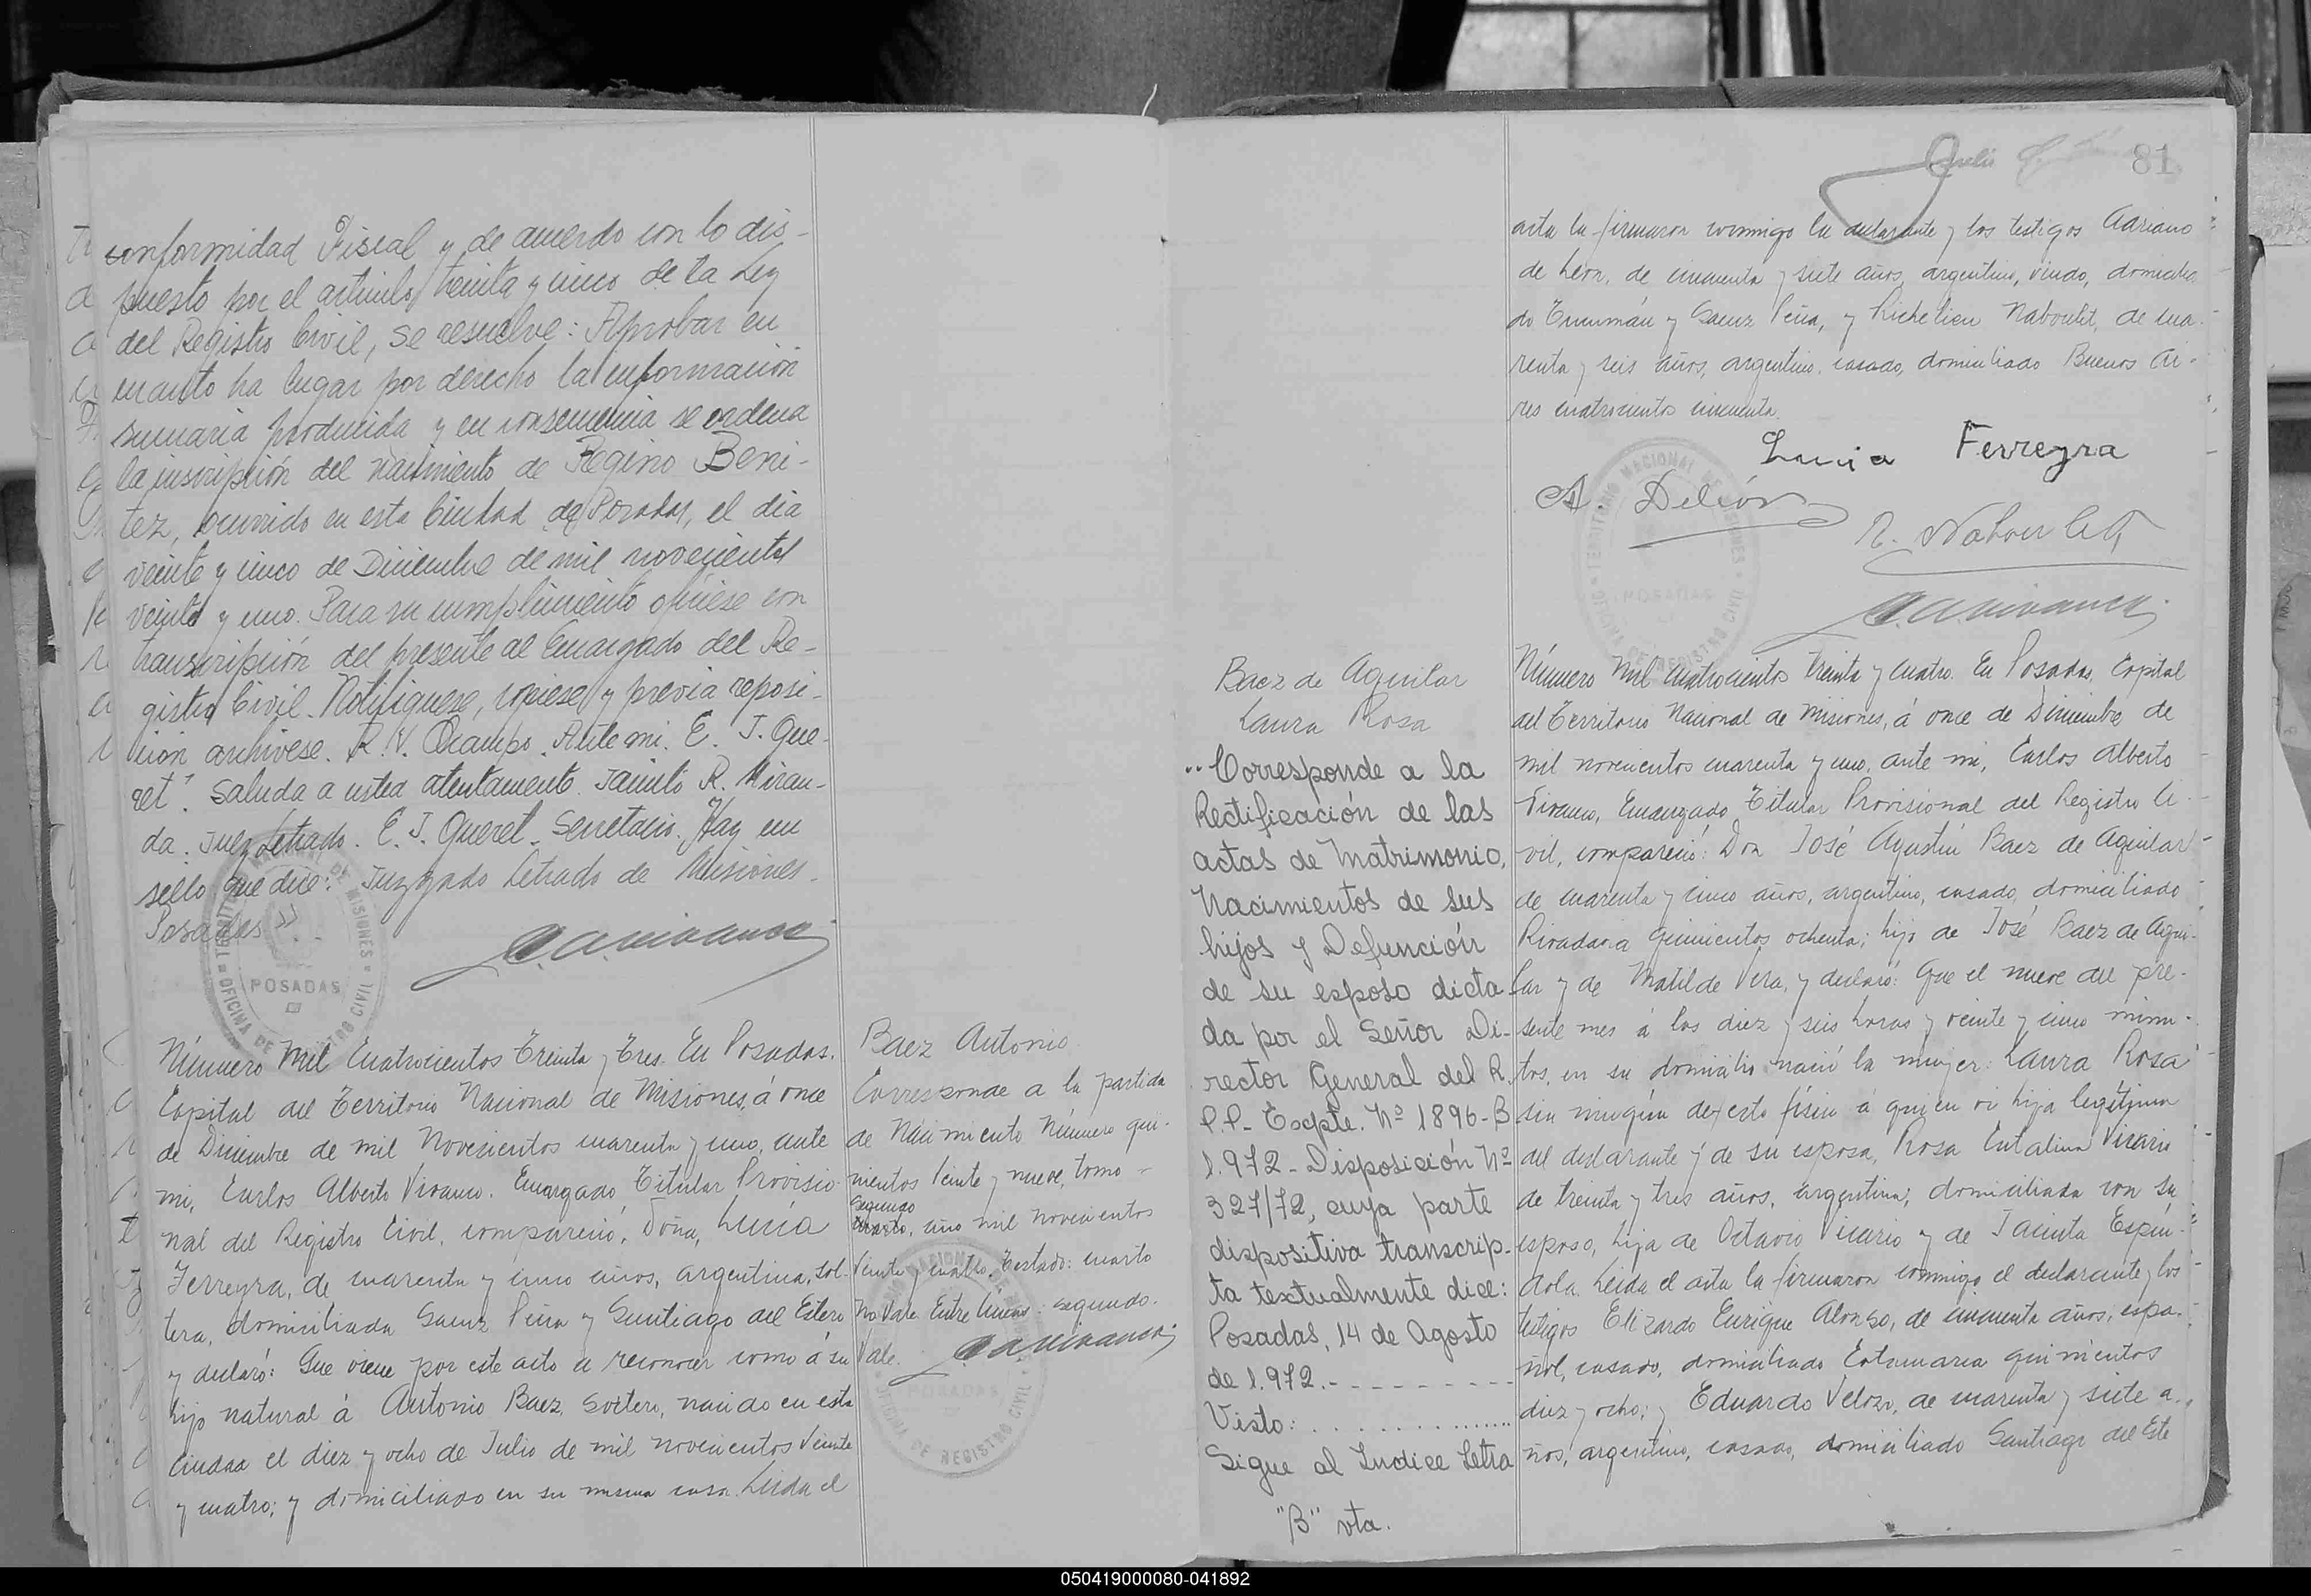 conformidad Fiscal y de acuerdo con lo dis-
puesto por el artículo treinta y cinco de la Ley
del Registro Civil, se resuelve: Aprobar en
cuanto ha lugar por derecho la información
sumaria producida y en consecuencia se ordena
la inscripción del nacimiento de Regino Beni-
tez, ocurrido en esta Ciudad de Posadas, el dia
veinte y cinco de Diciembre de mil novecientos
veinte y uno. Para su cumplimiento ofíciese con
transcripción del presente al Encargado del Re-
gistro Civil. Notifíquese, cópiese y previa reposi-
ción archívese. R. V. Ocampo. Ante mi. E. J. Que-
ret". Saluda a usted atentamente. Jacinto R. Miran-
da. Juez Letrado. E. J. Queret. Secretario. Hay un
sello que dice: Juzgado Letrado de Misiones.
Posadas»
POSADAS
Número Mil Cuatrocientos Treinta y Tres. En Posadas.
Capital del Territorio Nacional de Misiones, á once
de Diciembre de mil Novecientos cuarenta y uno, ante
mi, Carlos Alberto Vivanco. Encargado Titular Provisio-
nal del Registro Civil, compareció, Doña, Lucía
Ferreyra, de cuarenta y cinco años, argentina, sol-
tera, domiciliada Saenz Peña y Santiago del Estero
y declaró: Que viene por este acto a reconocer como á su
hijo natural á Antonio Baez, soltero, nacido en esta
Ciudad el diez y ocho de Julio de mil novecientos Veinte
y cuatro; y domiciliado en su misma casa. Leida el
Baez Antonio
Corresponde a la partida
de Nacimiento Número qui-
nientos Veinte y nueve, tomo
segundo
cuarto, año mil novecientos
Veinte y cuatro. Testado: cuarto
No Vale. Entre líneas: segundo.
Vale.
81
acta la firmaron conmigo la declarante y los testigos Adriano
de León, de cincuenta y siete años, argentino, viudo, domicilia-
do Tucumán y Saenz Peña, y Richelieu Naboulet, de cua-
renta y seis años, argentino, casado, domiciliado Buenos Ai-
res cuatrocientos cincuenta.
Lucia Ferreyra
A. Deleón
R. Naboulet
Baez de Aguilar
Laura Rosa
"Corresponde a la
Rectificación de las
actas de Matrimonio,
Nacimientos de sus
hijos y Defunción
de su esposo dicta
da por el Señor Di-
rector General del R.
P.P.- Expte. Nº 1896-B
1.972 - Disposición Nº
327/72, cuya parte
dispositiva transcrip-
ta textualmente dice:
Posadas, 14 de Agosto
de 1.972.- - - - - - - -
Visto: . . . . . . . . . . . .
Sigue al Indice Letra
"B" vta.
Número Mil cuatrocientos treinta y cuatro. En Posadas, Capital
del Territorio Nacional de Misiones, á once de Diciembre de
mil novecientos cuarenta y uno, ante mi, Carlos Alberto
Vivanco, Encargado Titular Provisional del Registro Ci-
vil, compareció: Don José Agustín Baez de Aguilar
de cuarenta y cinco años, argentino, casado, domiciliado
Rivadavia quinientos ochenta; hijo de José Baez de Agui-
lar y de Matilde Vera, y declaró: Que el nueve del pre-
sente mes á las diez y seis horas y veinte y cinco minu-
tos, en su domicilio nació la mujer: Laura Rosa
sin ningún defecto físico á quien vi hija legítima
del declarante y de su esposa, Rosa Catalina Vicario
de treinta y tres años, argentina, domiciliada con su
esposo, hija de Octavio Vicario y de Jacinta Espín-
dola. Leida el acta la firmaron conmigo el declarante y los
testigos Elizardo Enrique Alonso, de cincuenta años, espa-
ñol, casado, domiciliado Catamarca quinientos
diez y ocho; y Eduardo Velozo, de cuarenta y siete a-
ños, argentino, casado, domiciliado Santiago del Este
050419000080-041892